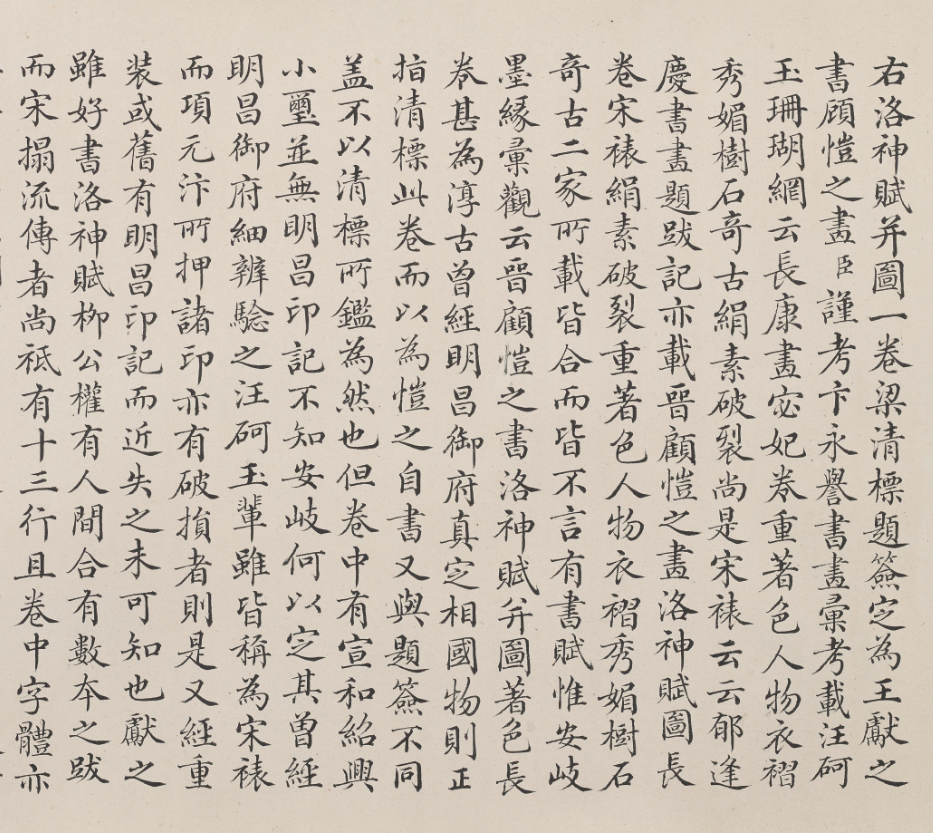 右洛神賦并圖一卷梁清標題簽定為王獻之
書顧愷之畫臣謹考卞永譽書畫彙考載汪砢
玉珊瑚網云長康畫宓妃卷重著色人物衣褶
秀媚樹石奇古絹素破裂尚是宋裱云云郁逢
慶書畫題跋記亦載晉顧愷之畫洛神賦圖長
卷宋裱絹素破裂重著色人物衣褶秀媚樹石
奇古二家所載皆合而皆不言有書賦惟安岐
墨緣彙觀云晉顧愷之書洛神賦并圖著色長
卷甚為淳古曾經明昌御府真定相國物則正
指清標此卷而以為愷之自書又與題簽不同
盖不以清標所鑑為然也但卷中有宣和紹興
小璽並無明昌印記不知安岐何以定其曾經
明昌御府細辨驗之汪砢玉輩雖皆稱為宋裱
而項元汴所押諸印亦有破損者則是又經重
裝或舊有明昌印記而近失之未可知也獻之
雖好書洛神賦柳公權有人間合有數本之跋
而宋搨流傳者尚祗有十三行且卷中字體亦